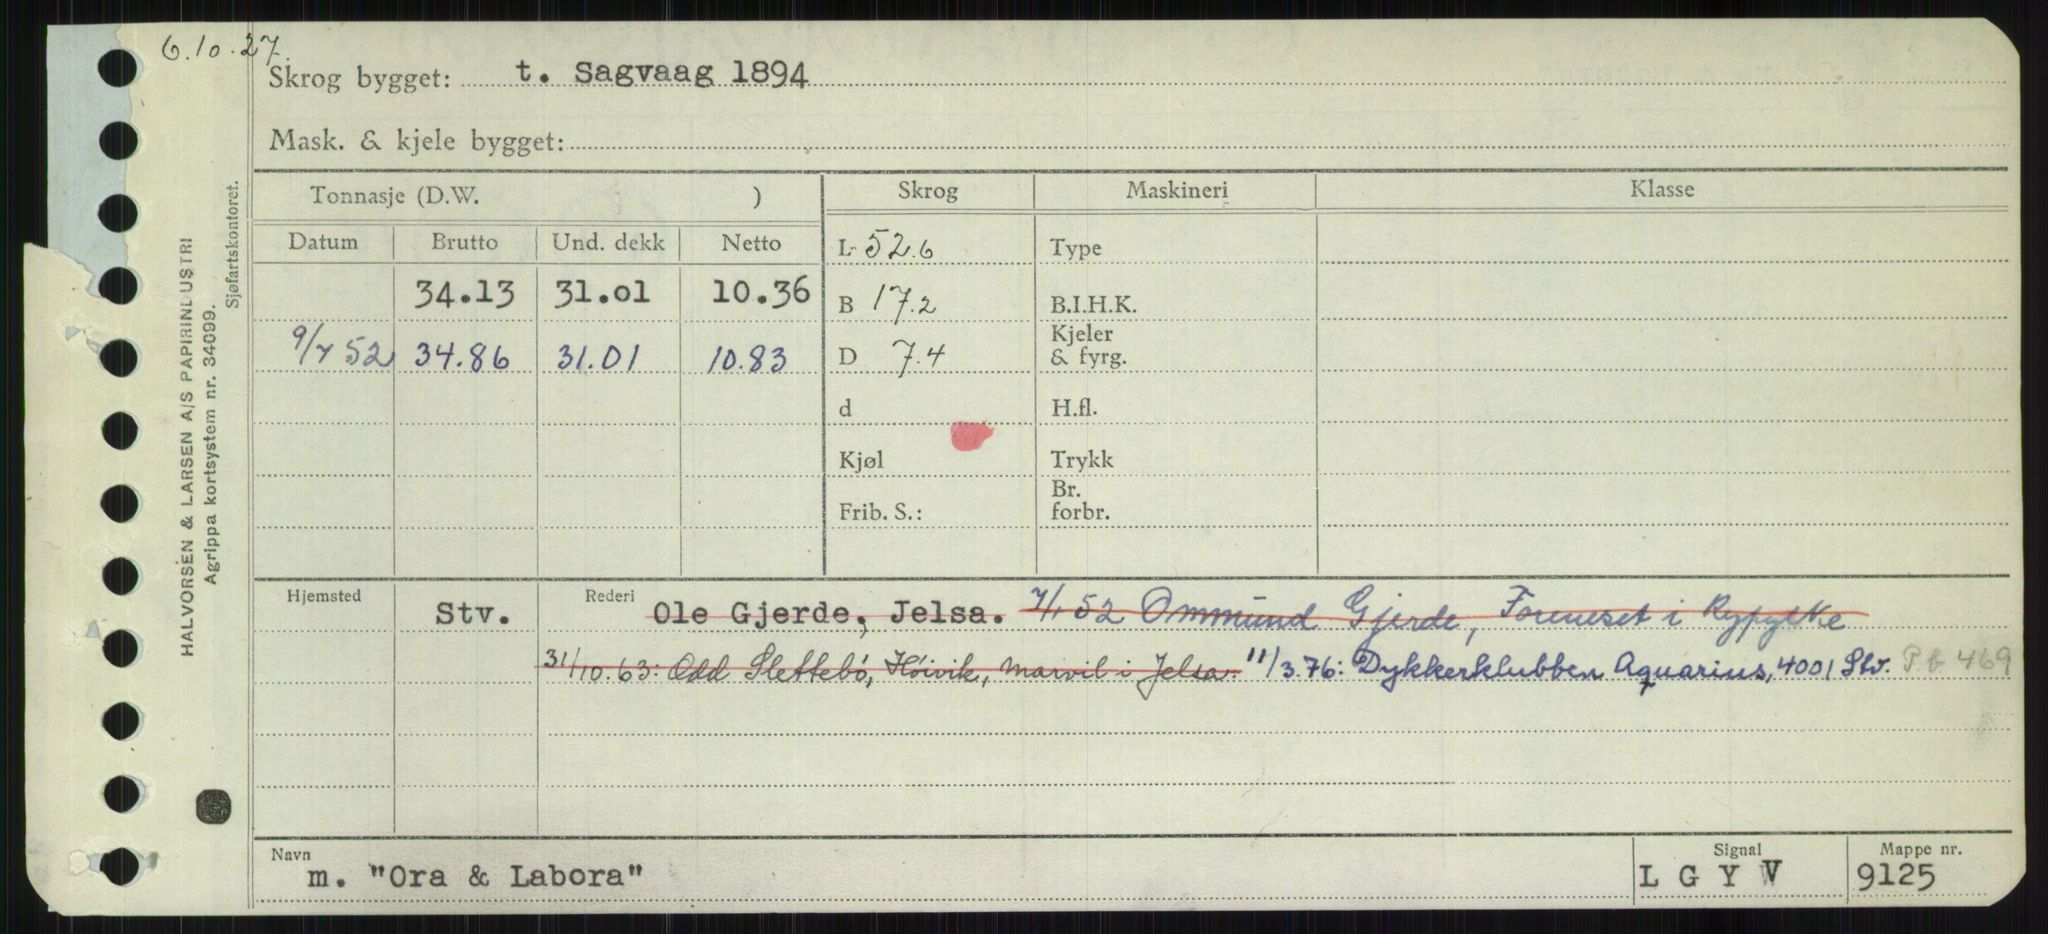 6.10.27.
Skrog bygget: t. Sagvaag 1894
Mask. & kjele bygget:
Tonnasje (D.W. ) Skrog Maskineri Klasse
Datum Brutto Und. dekk Netto L 52.6 Type
34.13 31.01 10.36 B 17.2 B.I.H.K.
9/7 52 34.86 31.01 10.83 D 7.4 Kjeler & fyrg.
d H.fl.
Kjøl Trykk
Frib. S.: Br. forbr.
Hjemsted Stv. Rederi Ole Gjerde, Jelsa. 7/1 52 Ommund Gjerde, Foreneset i Ryfylke
31/10.63: Odd Slettebø, Høivik, Marvil i Jelsa. 11/3.76: Dykkerklubben Aquarius, 4001 Stv. Pb 469
Navn m. "Ora & Labora" Signal L G Y V Mappe nr. 9125
HALVORSEN & LARSEN A/S PAPIRINDUSTRI
Agrippa kortsystem nr. 34099.
Sjøfartskontoret.